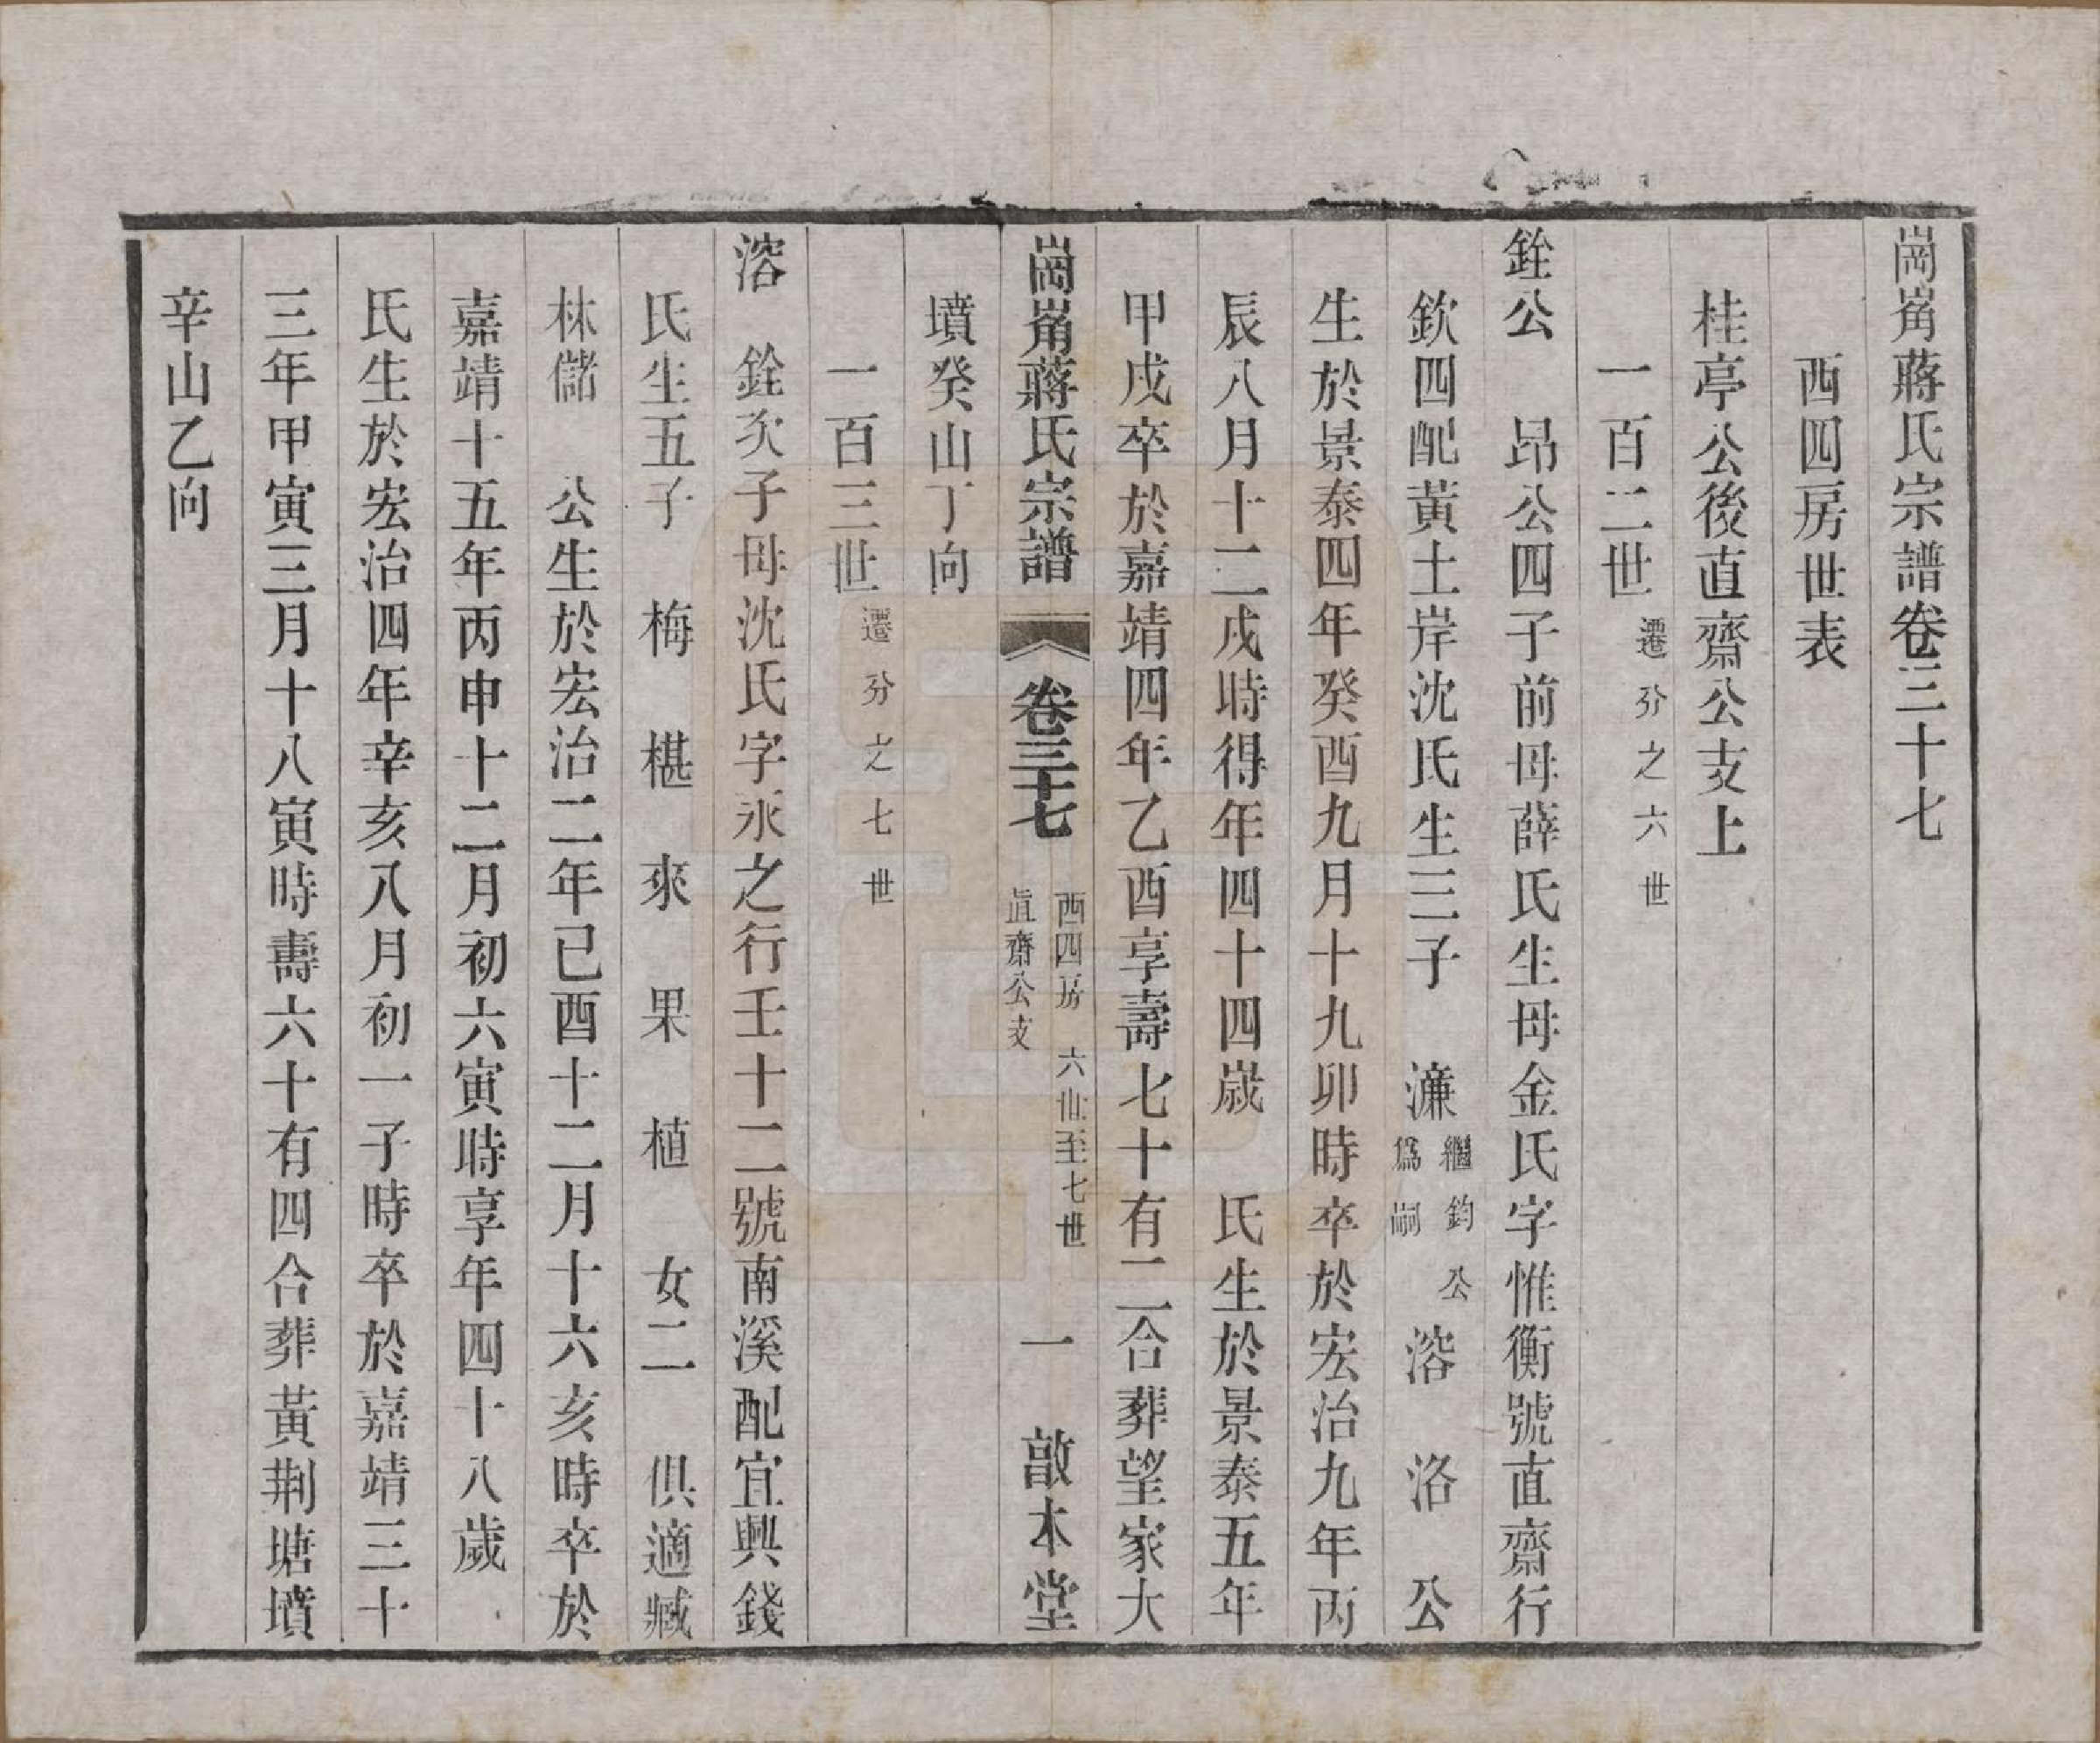 崗崗蔣氏宗譜卷三十七
西四房世表
桂亭公後直齋公支上
一百二世 遷分之六世
銓公 昂公四子前母薛氏生母金氏字惟衡號直齋行
欽四配黃土岸沈氏生三子 濂 繼鈞公為嗣 溶 洛 公
生於景泰四年癸酉九月十九卯時卒於宏治九年丙
辰八月十二戌時得年四十四歲 氏生於景泰五年
甲戌卒於嘉靖四年乙酉享壽七十有二合葬望家大
崗崗蔣氏宗譜 卷三十七 西四房 六世至七世 直齋公支 一 敦本堂
墳癸山丁向
一百三世 遷分之七世
溶 銓次子母沈氏字永之行壬十二號南溪配宜興錢
氏生五子 梅 椹 來 果 植 女二 俱適臧
林儲 公生於宏治二年己酉十二月十六亥時卒於
嘉靖十五年丙申十二月初六寅時享年四十八歲
氏生於宏治四年辛亥八月初一子時卒於嘉靖三十
三年甲寅三月十八寅時壽六十有四合葬黃荆塘墳
辛山乙向